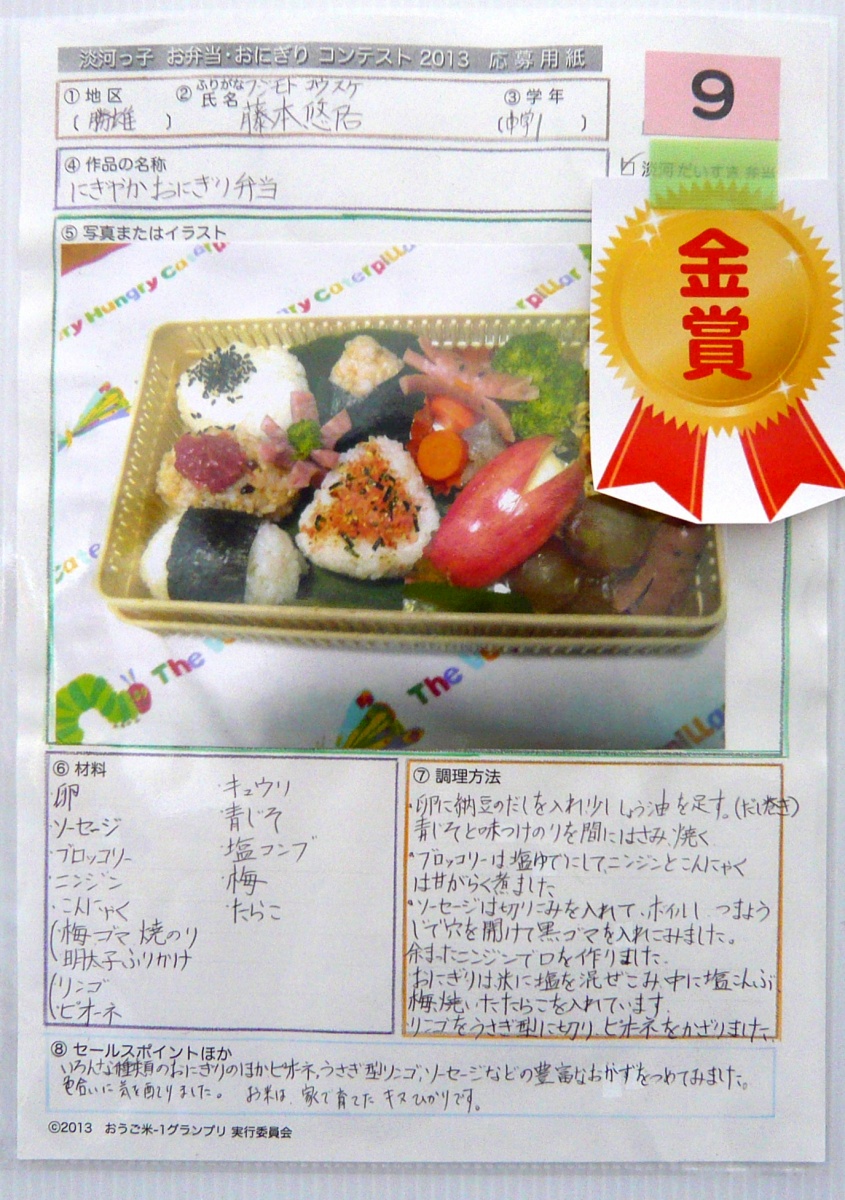 淡河っ子 お弁当・おにぎり コンテスト 2013 応募用紙
9
① 地区
(勝雄)
② ふりがな フジモト ユウスケ
氏名 藤本 悠
③ 学年
(中学1)
④ 作品の名称
にぎやかおにぎり弁当
淡河だいすき弁当
金賞
⑤ 写真またはイラスト
ry Hungry Caterpi
ry Caterpillar
The
⑥ 材料
・卵
・ソーセージ
・ブロッコリー
・ニンジン
・こんにゃく
・梅・ゴマ 焼のり
・明太子ふりかけ
・リンゴ
・ピオーネ
・キュウリ
・青じそ
・塩コンブ
・梅
・たらこ
⑦ 調理方法
・卵に納豆のだしを入れ少ししょう油を足す。(だし巻き)
青じそと味つけのりを間にはさみ、焼く
・ブロッコリーは塩ゆでにして、ニンジンとこんにゃく
は甘がらく煮ました
・ソーセージは切りこみを入れて、ボイルし、つまよう
じで穴を開けて黒ゴマを入れこみました。
余ったニンジンで口を作りました。
おにぎりは米に塩を混ぜこみ、中に塩こんぶ
梅、焼いたたらこを入れています。
リンゴをうさぎ型に切り、ピオーネをかざりました。
⑧ セールスポイントほか
いろんな種類のおにぎりのほかピオーネ、うさぎ型リンゴ、ソーセージなどの豊富なおかずをつめてみました。
色合いに気を配りました。 お米は、家で育てたキヌヒカリです。
©2013 おうご米-1グランプリ 実行委員会